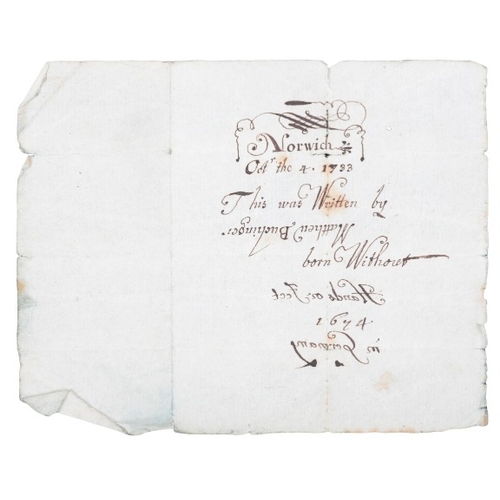 Norwich
Octr the 4. 1733
This was Written by
Matthew Buchinger,
born Without
Hands or Feet
1674
in Germany